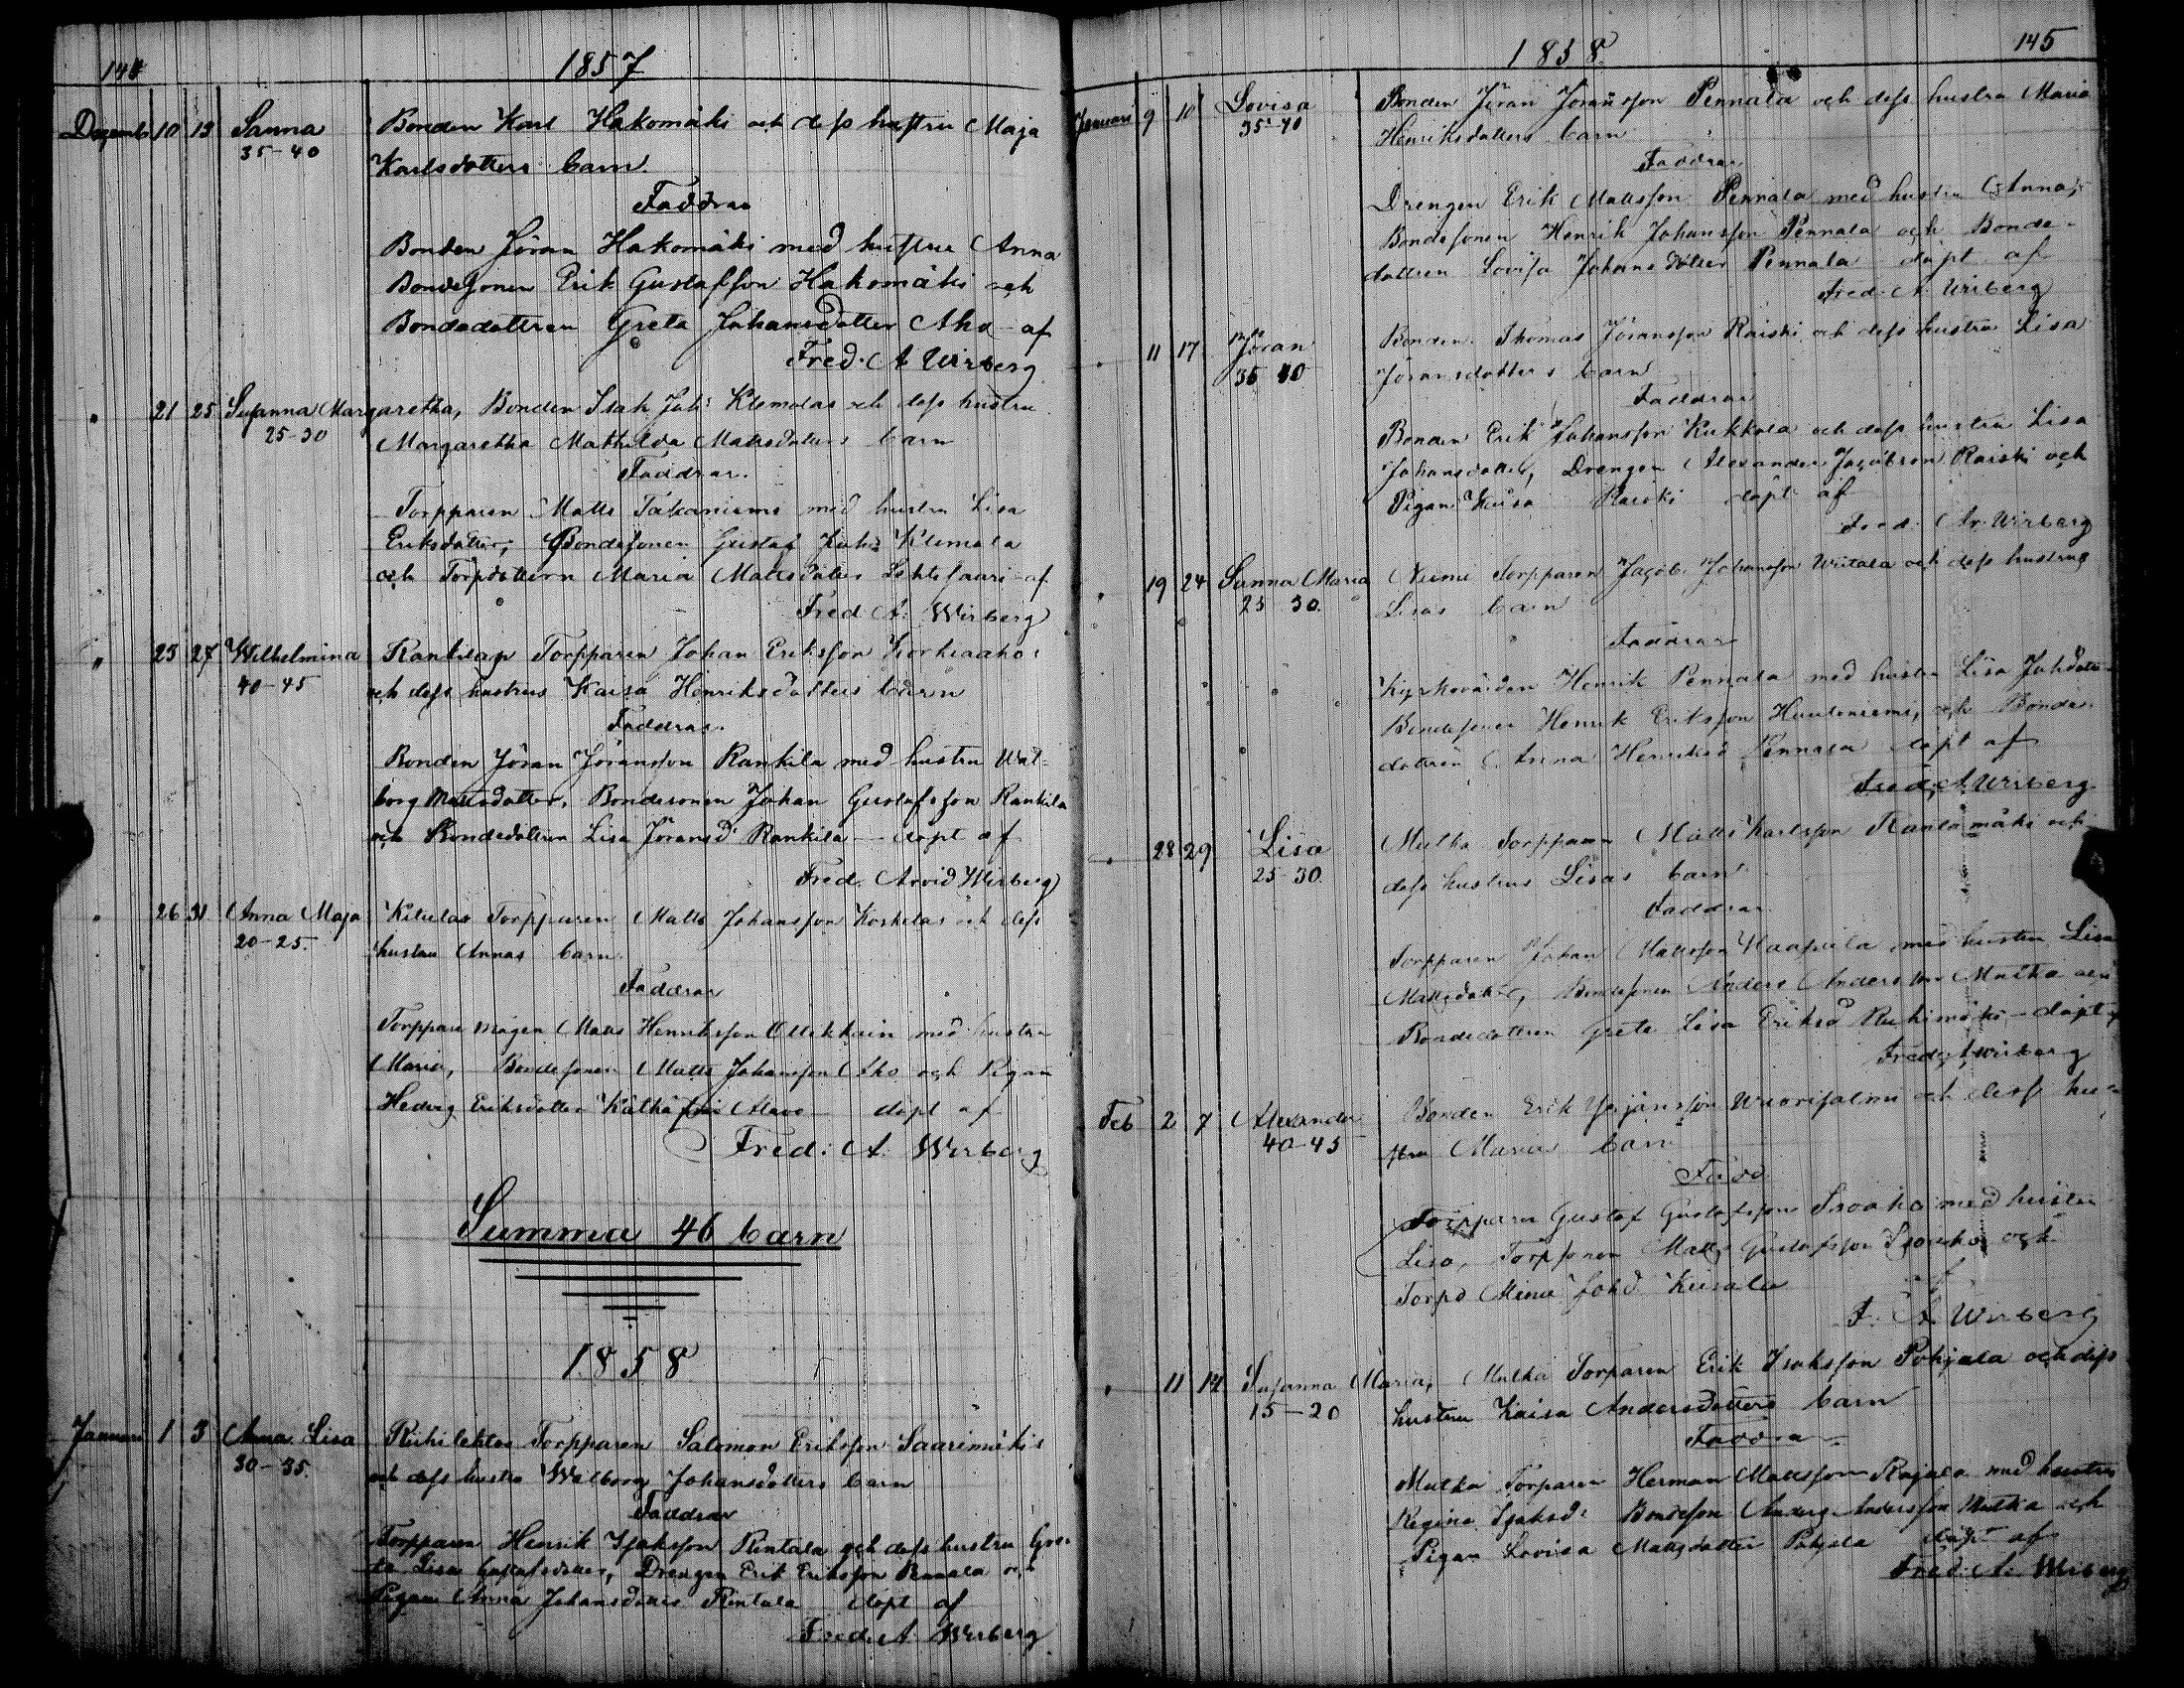 144
1857
Dezemb 10 13 Sanna Bonden Karl Hakomäki och dess hustru Maja
35-40 Karlsdotters barn.
Faddrar
Bonden Jöran Hakomäki med hustru Anna
Bondesonen Erik Gustafsson Hakomäki och
Bondedottren Greta Johansdotter Aho af
Fred. A Wirberg
" 21 25 Susanna Margaretha, Bonden Isak Joh: Klemolas och dess hustru
25-30 Margaretha Mathilda Mattsdotters barn
Faddrar.
Torpparen Matts Täkäniemi med hustru Lisa
Eriksdotter, Bondesonen Gustaf Klemola
och Torpdottern Maria Mattsdotter Lehtisaari af
Fred A. Wirberg
" 23 27 Wilhelmina Rankilas Torpparen Johan Eriksson Korkiaaho
40-45 och dess hustrus Kaisa Henriksdotters barn
Faddrar.
Bonden Jöran Jöransson Rankila med hustru Wal-
borg Mattsdotter, Bondesonen Johan Gustafsson Rankila
och Bondedottren Lisa Jöransd: Rankila – döpt af
Fred. Arvid Wirberg
" 26 31 Anna Maja Torpparen Matts Johansson Koskelas och dess
20-25. hustru Annas barn
Faddrar
Torppare mågen Matts Henriksson Ollikkain med hustru
Maria, Bondesonen Matts Johansson Aho och Pigan
Hedvig Eriksdotter från Alavo – döpt af
Fred: A. Wirberg
Summa 46 barn
1858
Januari 1 3 Anna Lisa Torpparen Salomon Eriksson Saarimäkis
30-35. och dess hustru Walborg Johansdotters barn
Faddrar
Torpparen Henrik Isaksson Rintala och dess hustru Gre-
ta Lisa Gustafsdotter, Drengen Erik Eriksson och
Pigan Anna Johansdotter Rintala döpt af
Fred. A. Wirberg
1858.
145
Januari 9 10 Lovisa Bonden Jöran Jöransson Pennala och dess hustru Maria
35-40 Henriksdotters barn
Faddrar
Drengen Erik Mattsson Pennala med hustru Anna,
Bondesonen Henrik Johansson Pennala och Bonde-
dottren Lovisa Johansdotter Pennala döpt af
Fred. A. Wirberg
" 11 17 Jöran Bonden Thomas Jöransson Raiski och dess hustru Lisa
35 40 Jöransdotters barn
Faddrar
Bonden Erik Johansson Kukkola och dess hustru Lisa
Johansdotter, Drengen Alexander Jacobsson Raiski och
Pigan Kaisa Raiski döpt af
Fred. Ar. Wirberg
" 19 24 Sanna Maria Niemi Torpparen Jacob Johansson och dess hustrus
25 30. Lisas barn
Faddrar
Kyrkovärden Henrik Pennala med hustru Lisa Johdotter
Bondesonen Henrik Eriksson och Bonde-
dottren Anna Henriksd Pennala döpt af
Fred. A Wirberg
" 28 29 Lisa Mutka Torpparen Matts Karlsson Rantamäki och
25-30. dess hustrus Lisas barn
Faddrar.
Torpparen Johan Mattsson med hustru Lisa
Mattsdotter, Bondesonen Anders Andersson Mutka och
Bondedottren Greta Lisa Eriksd – döpt af
Fred. A. Wirberg
Feb 2 7 Alexander Bonden Erik Yrjänsson och dess hu-
40-45 stru Marias barn
Fadd
Torpparen Gustaf Gustafsson Isoaho med hustru
Lisa, Torpsonen Matts Gustafsson Isoaho och
Torpd Johd
F. A. Wirberg
" 11 14 Susanna Maria, Mutka Torparen Erik Isaksson Pohjala och dess
15-20 hustru Kaisa Andersdotters barn
Faddra
Mutka Torparen Herman Mattsson Rajala med hustru
Regina Isaksd: Bondeson Anders Andersson Mutka och
Pigan Lovisa Mattsdotter Pohjala döpt af
Fred. A. Wirberg